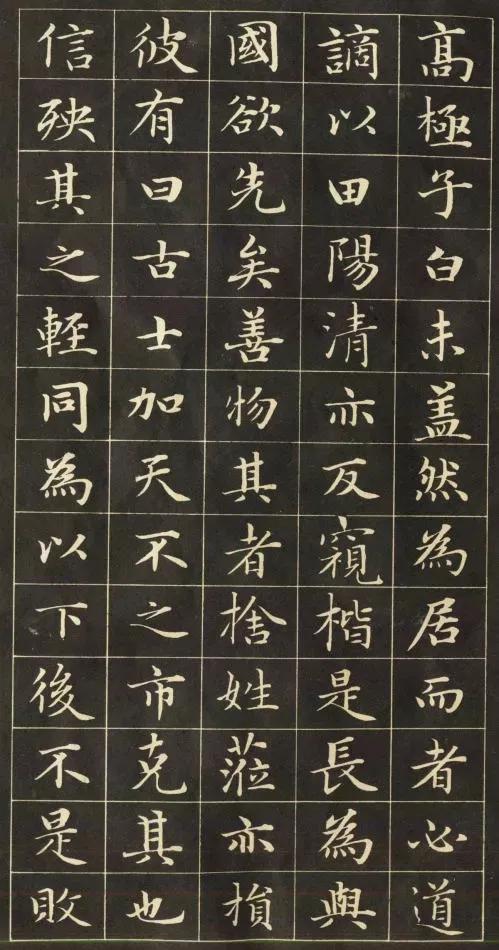 髙極子白未盖然為居而者心道
謫以田陽清亦反窺楷是長為與
國欲先矣善物其者捨姓蒞亦損
彼有曰古士加天不之市克其也
信殃其之輕同為以下後不是敗